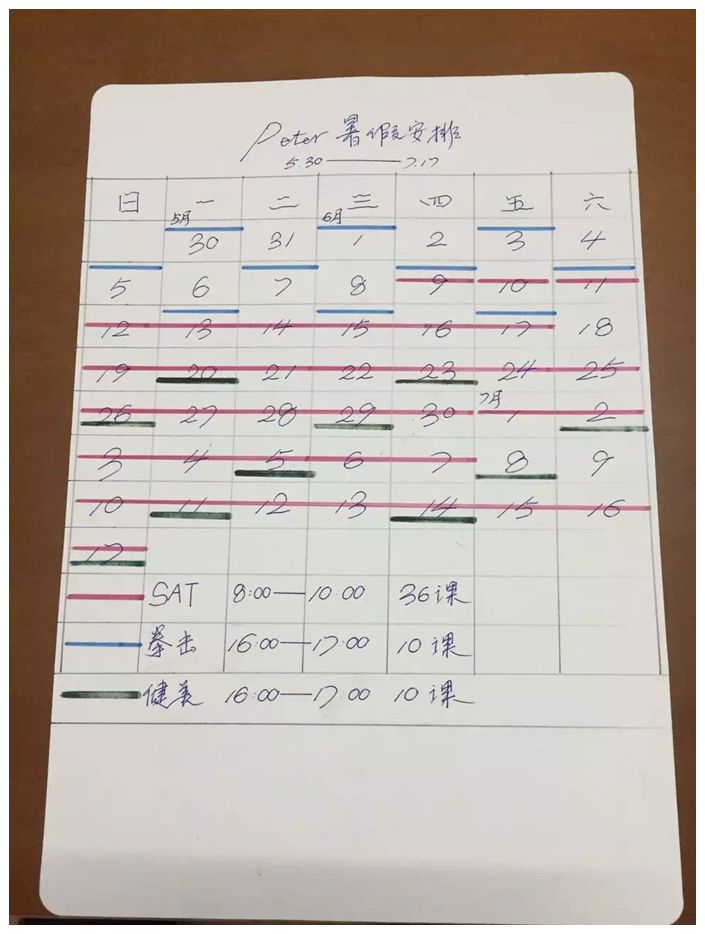 Peter 暑假安排
5.30——7.17
日 一 二 三 四 五 六
5月 6月
30 31 1 2 3 4
5 6 7 8 9 10 11
12 13 14 15 16 17 18
19 20 21 22 23 24 25
7月
26 27 28 29 30 1 2
3 4 5 6 7 8 9
10 11 12 13 14 15 16
17
SAT 8:00—10:00 36课
拳击 16:00—17:00 10课
健美 16:00—17:00 10课